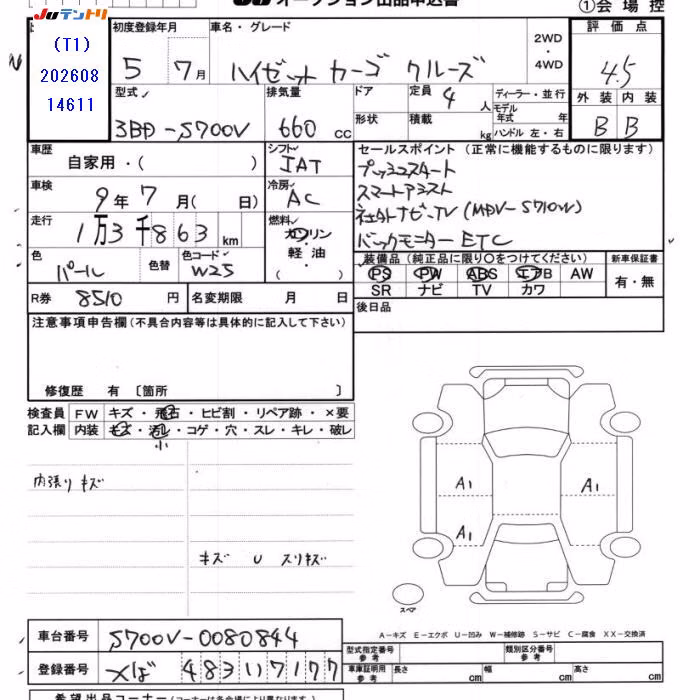 JUオークション出品申込書
①会場控
JUテントリ
(T1)
202608
14611
初度登録年月 車名・グレード 2WD・4WD 評価点
5 7月 ハイゼットカーゴ クルーズ 4.5
型式 排気量 ドア 定員 4人 ディーラー・並行 外装 内装
3BD-S700V 660cc 形状 積載 kg モデル年式 年 ハンドル 左・右 B B
車歴 自家用・( ) シフト IAT セールスポイント (正常に機能するものに限ります)
プッシュスタート
スマートアシスト
車検 9年7月( 日) 冷房 AC
ネオトナビ-TV (MDV-S710W)
走行 1万3千863km 燃料 ガソリン・軽油・( )
バックモニター ETC
色 パール 色替 色コード W25
装備品 (純正品に限り○をつけてください) 新車保証書
PS PW ABS エアB AW 有・無
SR ナビ TV カワ
R券 8510円 名変期限 月 日
後日品
注意事項申告欄(不具合内容等は具体的に記入して下さい)
修復歴 有 〔箇所 〕
検査員 FW キズ・飛石・ヒビ割・リペア跡・×要
記入欄 内装 キズ・汚レ・コゲ・穴・スレ・キレ・破レ
小
内張りキズ
キズ U スリキズ
A1 A1
A1
スペア
A-キズ E-エクボ U-凹み W-補修跡 S-サビ C-腐食 XX-交換済
車台番号 S700V-0080844
型式指定番号 類別区分番号
登録番号
483 い 7177
車庫証明用参考 長さ cm 幅 cm 高さ cm
希望出品コーナー(コーナーは各会場により異なります)